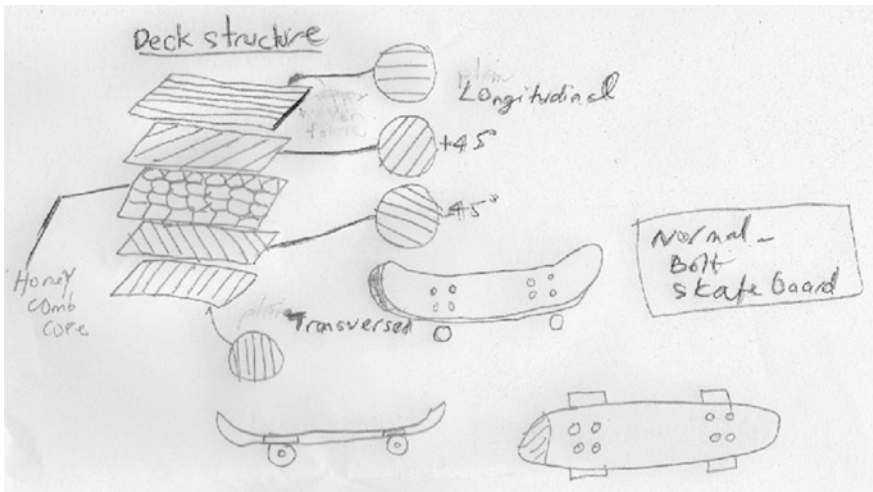 Deck structure
Longitudinal
+45°
-45°
Honey
comb
core
Transversed
Normal -
Bolt
skateboard